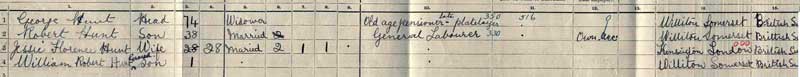 George Hunt Head 74 Widower Old age pensioner late platelayer 350 516 Williton Somerset British
Robert Hunt Son 38 Married General Labourer Own acc Williton Somerset British
Florence Hunt Wife 28 28 Married 2 1 1 Kensington London British
William Robert Hunt Son 1 Williton Somerset British